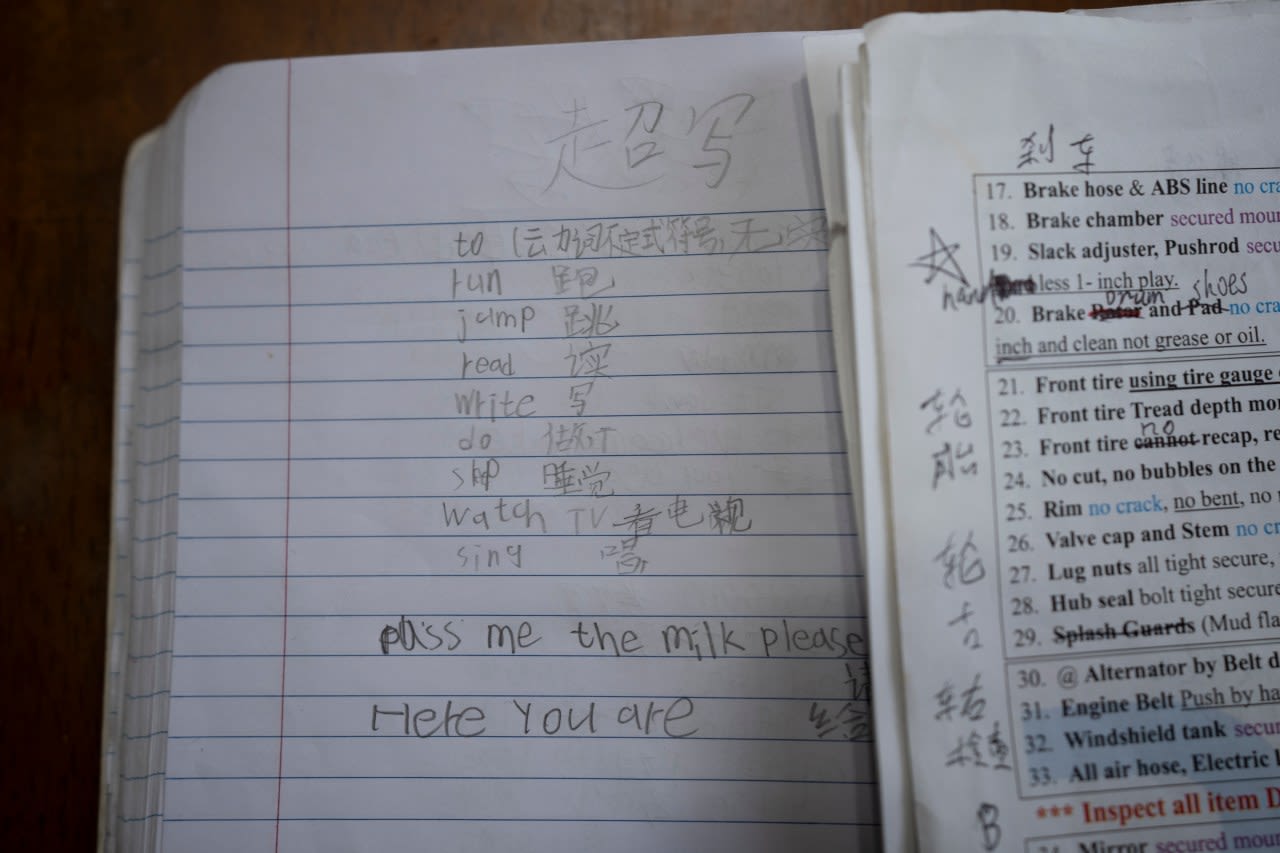 超写
to (动词不定式符号,无
run 跑
jump 跳
read 读
write 写
do 做
slep 睡觉
watch TV 看电视
sing 唱
pass me the milk please
请
Here you are 给
刹车
17. Brake hose & ABS line no cra
18. Brake chamber secured moun
19. Slack adjuster, Pushrod secu
less 1- inch play.
drum shoes
20. Brake Rotor and Pad no cra
inch and clean not grease or oil.
轮胎
21. Front tire using tire gauge
22. Front tire Tread depth mor
no
23. Front tire cannot recap, re
24. No cut, no bubbles on the
25. Rim no crack, no bent, no
轮
26. Valve cap and Stem no cr
27. Lug nuts all tight secure,
28. Hub seal bolt tight secure
29. Splash Guards (Mud fla
车右检查
30. @ Alternator by Belt d
31. Engine Belt Push by ha
32. Windshield tank secur
33. All air hose, Electric
*** Inspect all item D
B
34. Mirror secured moun